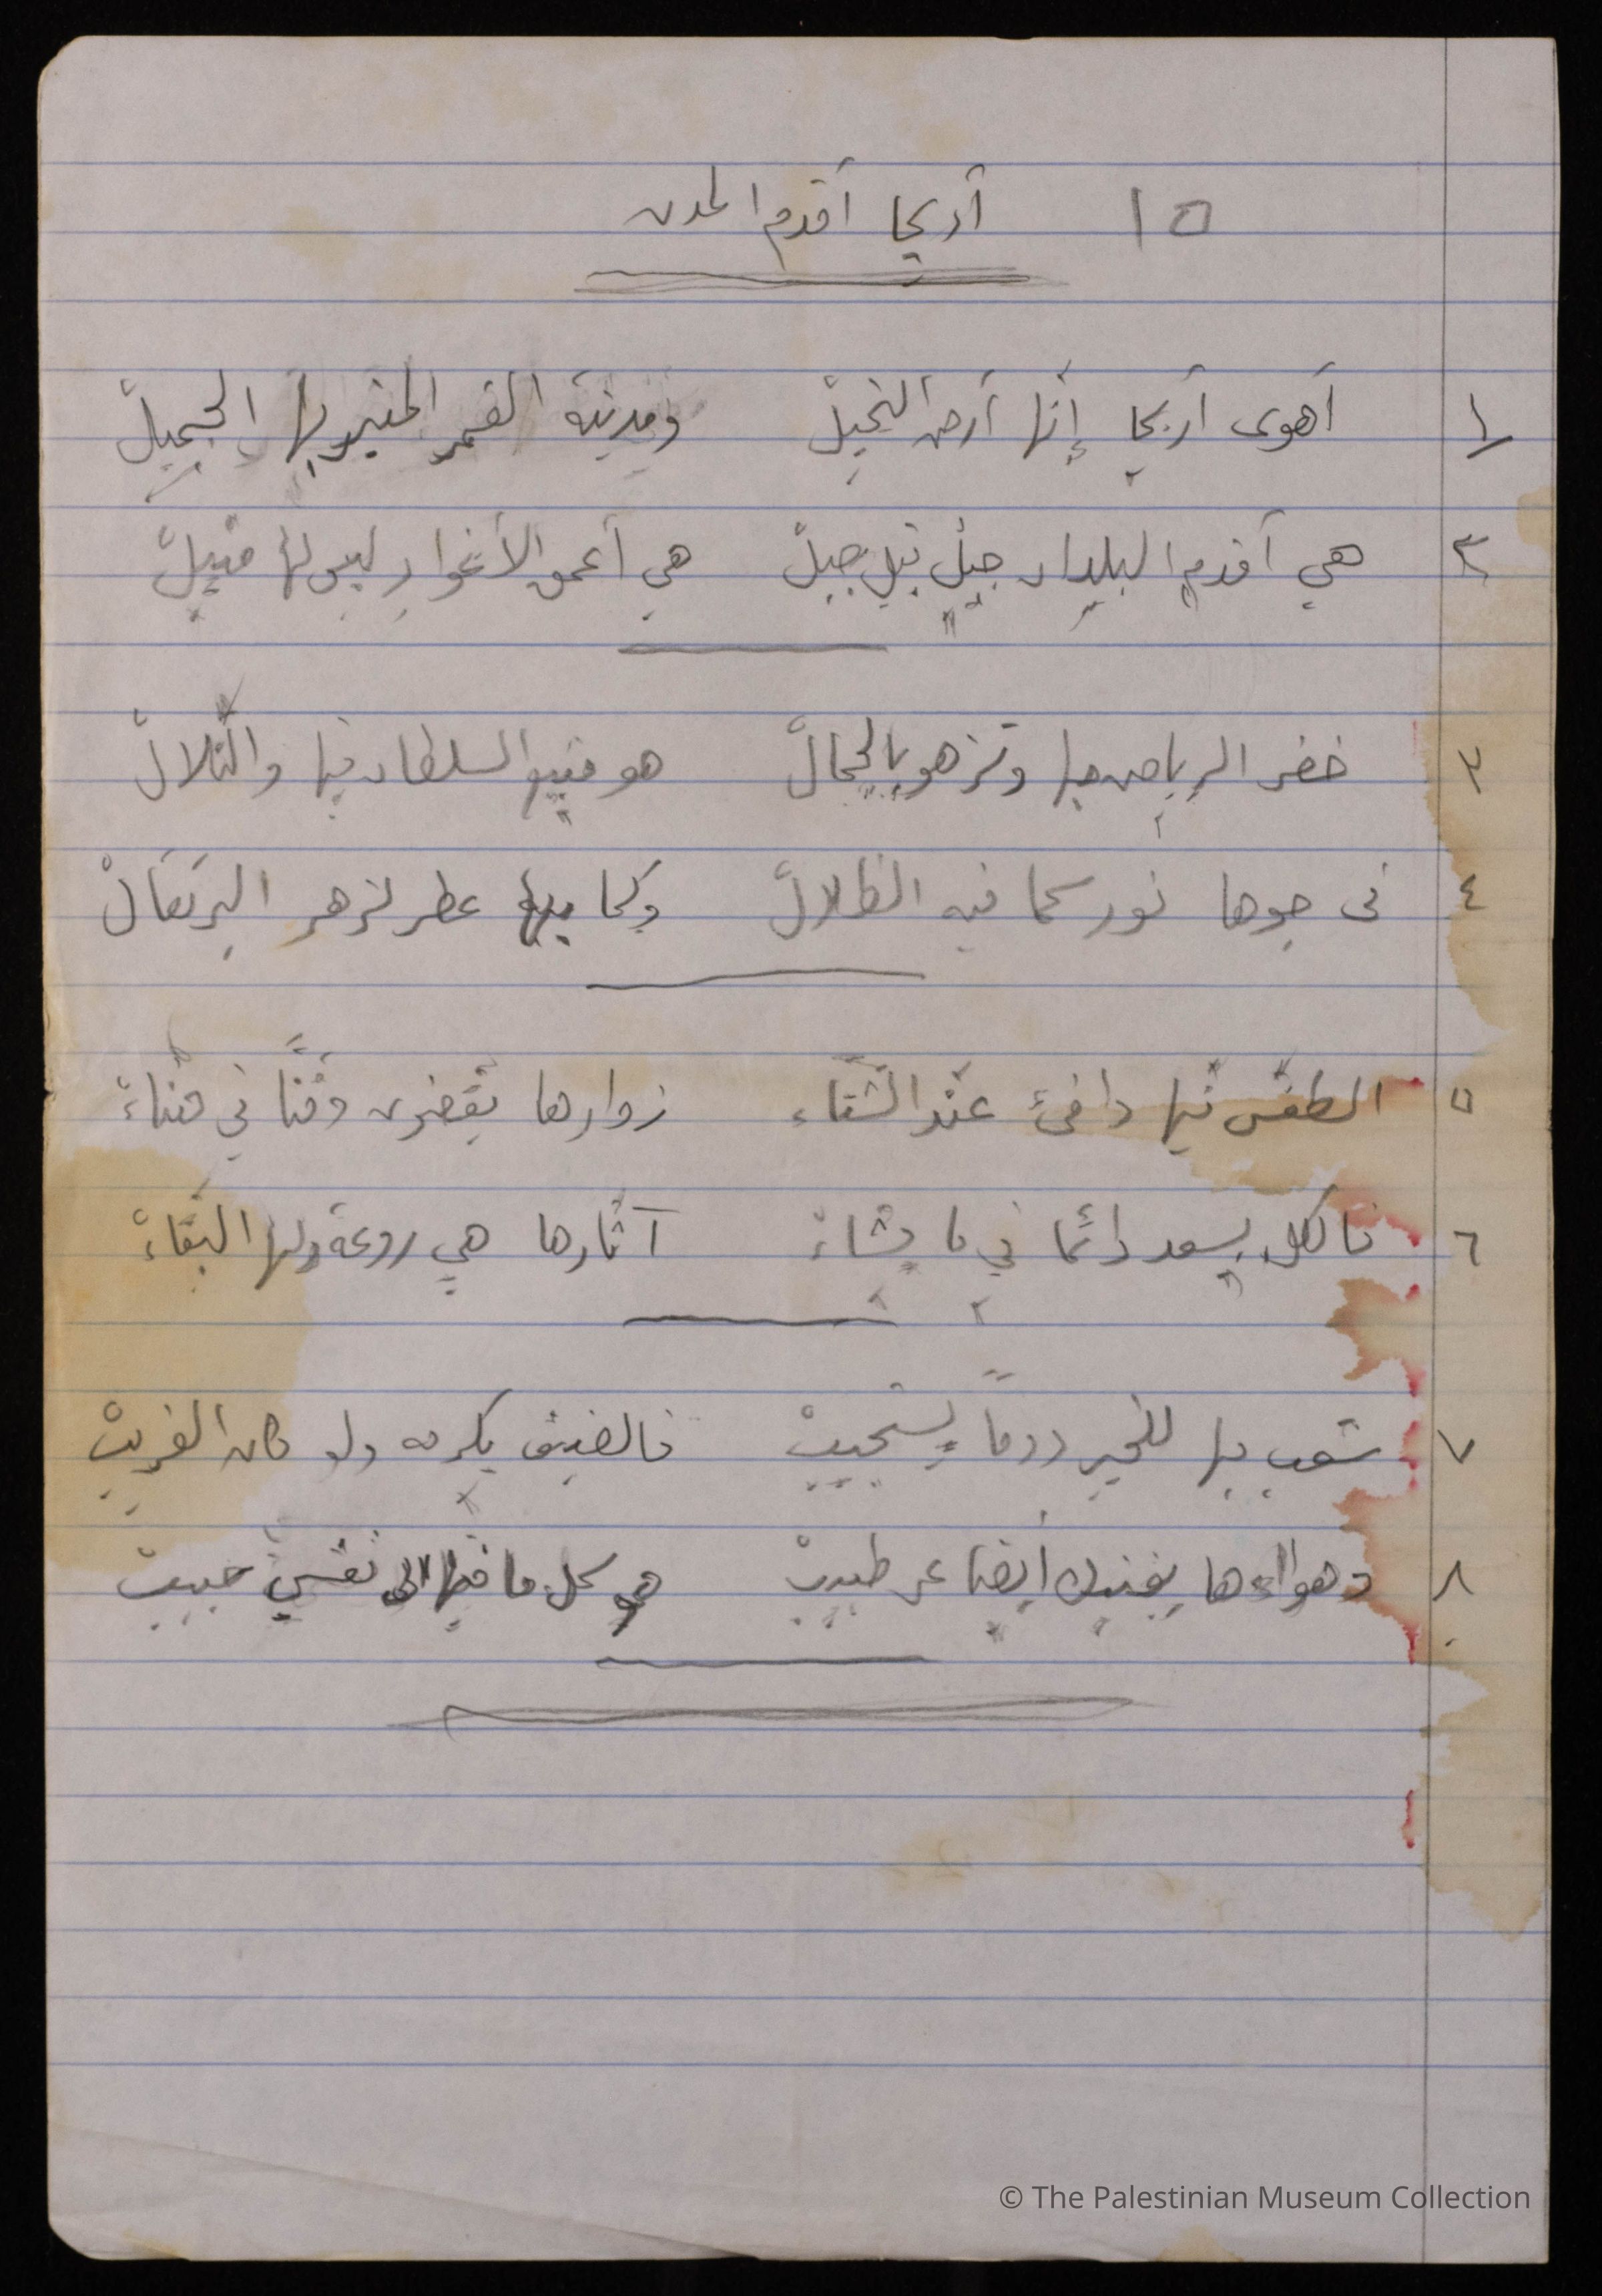 ١٥ أريحا أقدم المدن
١ أهوى أريحا إنها أرض النخيلْ ومدينة القمر المنير بها الجميلْ
٢ هي أقدم البلدان جيل قبل جيلْ هي أعمق الأغوار ليس لها مثيلْ
٣ خضر الرياض بها وتزهو بالجمالْ هو فيها السلطان فيها والتّلالْ
٤ في جوها نور سما فيه الظلالْ وكما بها عطر لزهر البرتقالْ
٥ الطقس فيها دافئ عند الشتاء زوارها يقضون وقتًا في هناءْ
٦ فالكل يسعد دائمًا في ما يشاءْ آثارها هي روعة ولها البقاءْ
٧ شعب بها للخير دومًا يستجيبْ فالضيف يكرمه ولو كان الغريبْ
٨ وهواءها يغنيك أيضا عن طبيبْ هي كل ما فيها الى نفسي حبيبْ
© The Palestinian Museum Collection